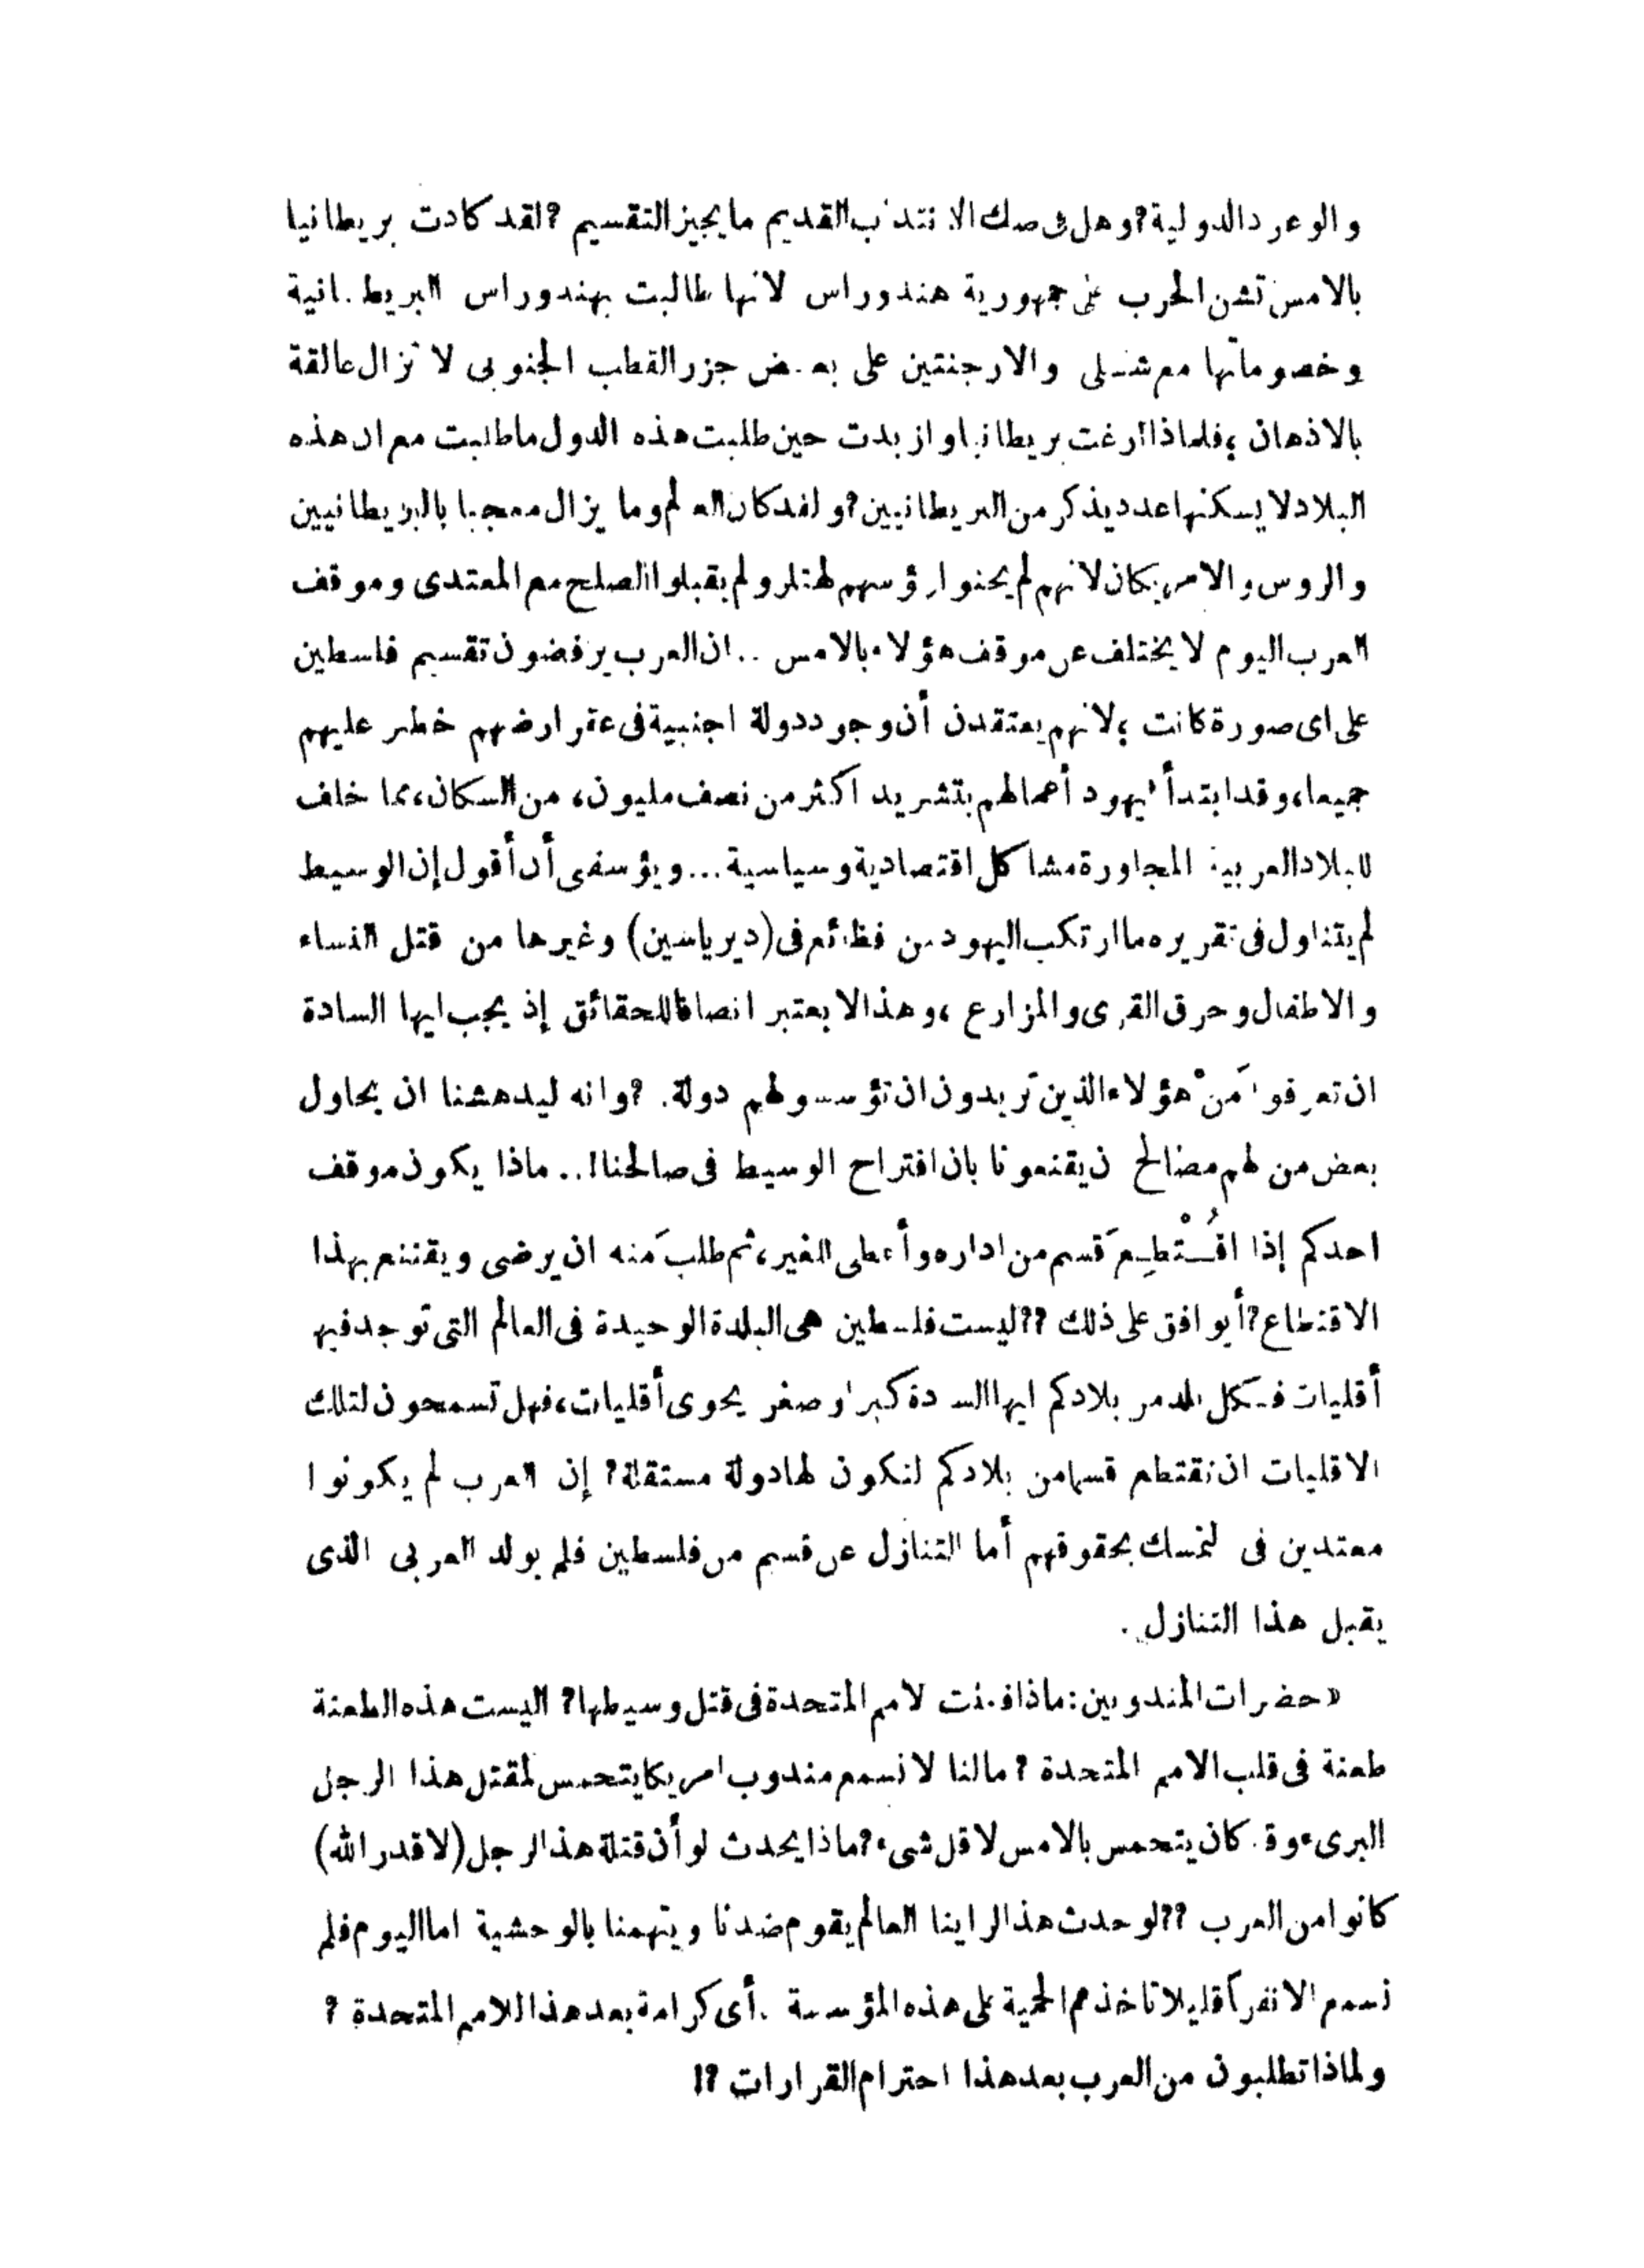 والوعود الدولية؟ وهل فى صك الانتداب القديم ما يجيز التقسيم ؟ لقد كادت بريطانيا
بالامس تشن الحرب على جمهورية هندوراس لانها طالبت بهندوراس البريطانية
وخصوماتها مع شيلى والارجنتين على بعض جزر القطب الجنوبى لا تزال عالقة
بالاذهان ؛ فلماذا ارغت بريطانيا وازبدت حين طلبت هذه الدول ما طلبت مع ان هذه
البلاد لا يسكنها عدد يذكر من البريطانيين؟ ولقد كان العالم وما يزال معجبا بالبريطانيين
والروس والامريكان لانهم لم يحنوا رؤسهم لهتلر ولم يقبلوا الصلح مع المعتدى وموقف
العرب اليوم لا يختلف عن موقف هؤلاء بالامس .. ان العرب يرفضون تقسيم فلسطين
على اى صورة كانت ؛ لانهم يعتقدن أن وجود دولة اجنبية فى عقر ارضهم خطر عليهم
جميعا، وقد ابتدأ اليهود أعمالهم بتشريد اكثر من نصف مليون، من السكان، مما خلف
للبلاد العربية المجاورة مشاكل اقتصادية وسياسية ... ويؤسفى أن أقول إن الوسيط
لم يتناول فى تقريره ما ارتكب اليهود من فظائع فى (دير ياسين) وغيرها من قتل النساء
والاطفال وحرق القرى والمزارع ، وهذا لا يعتبر انصافا للحقائق إذ يجب ايها السادة
ان تعرفوا مَنْ هؤلاء الذين تريدون ان تؤسسوا لهم دولة. ؟ وانه ليدهشنا ان يحاول
بعض من لهم مصالح ان يقنعونا بان اقتراح الوسيط فى صالحنا! .. ماذا يكون موقف
احدكم إذا اقُتْطِعَ قسم من اداره وأعطى للغير، ثم طلبَ منه ان يرضى ويقتنع بهذا
الاقتطاع؟ أيوافق على ذلك ؟؟ ليست فلسطين هى البلدة الوحيدة فى العالم التى توجد فيها
أقليات فكل بلد من بلادكم ايها السادة كبر او صغر يحوى أقليات، فهل تسمحون لتلك
الاقليات ان تقتطع قسما من بلادكم لتكون لها دولة مستقلة؟ إن العرب لم يكونوا
معتدين فى تمسك بحقوقهم أما التنازل عن قسم من فلسطين فلم يولد العربى الذى
يقبل هذا التنازل .
« حضرات المندوبين: ماذا فعلت الامم المتحدة فى قتل وسيطها؟ اليست هذه الطعنة
طعنة فى قلب الامم المتحدة ؟ مالنا لا نسمع مندوب امريكا يتحمس لمقتل هذا الرجل
البرىء وقد كان يتحمس بالامس لاقل شىء؟ ماذا يحدث لو أن قتلة هذا الرجل (لا قدر الله)
كانوا من العرب ؟؟ لو حدث هذا لراينا العالم يقوم ضدنا ويتهمنا بالوحشية اما اليوم فلم
نسمع الا نفراً قليلا تاخذهم الحمية على هذه المؤسسة . أى كرامة بعد هذا للامم المتحدة ؟
ولماذا تطلبون من العرب بعد هذا احترام القرارات ؟!